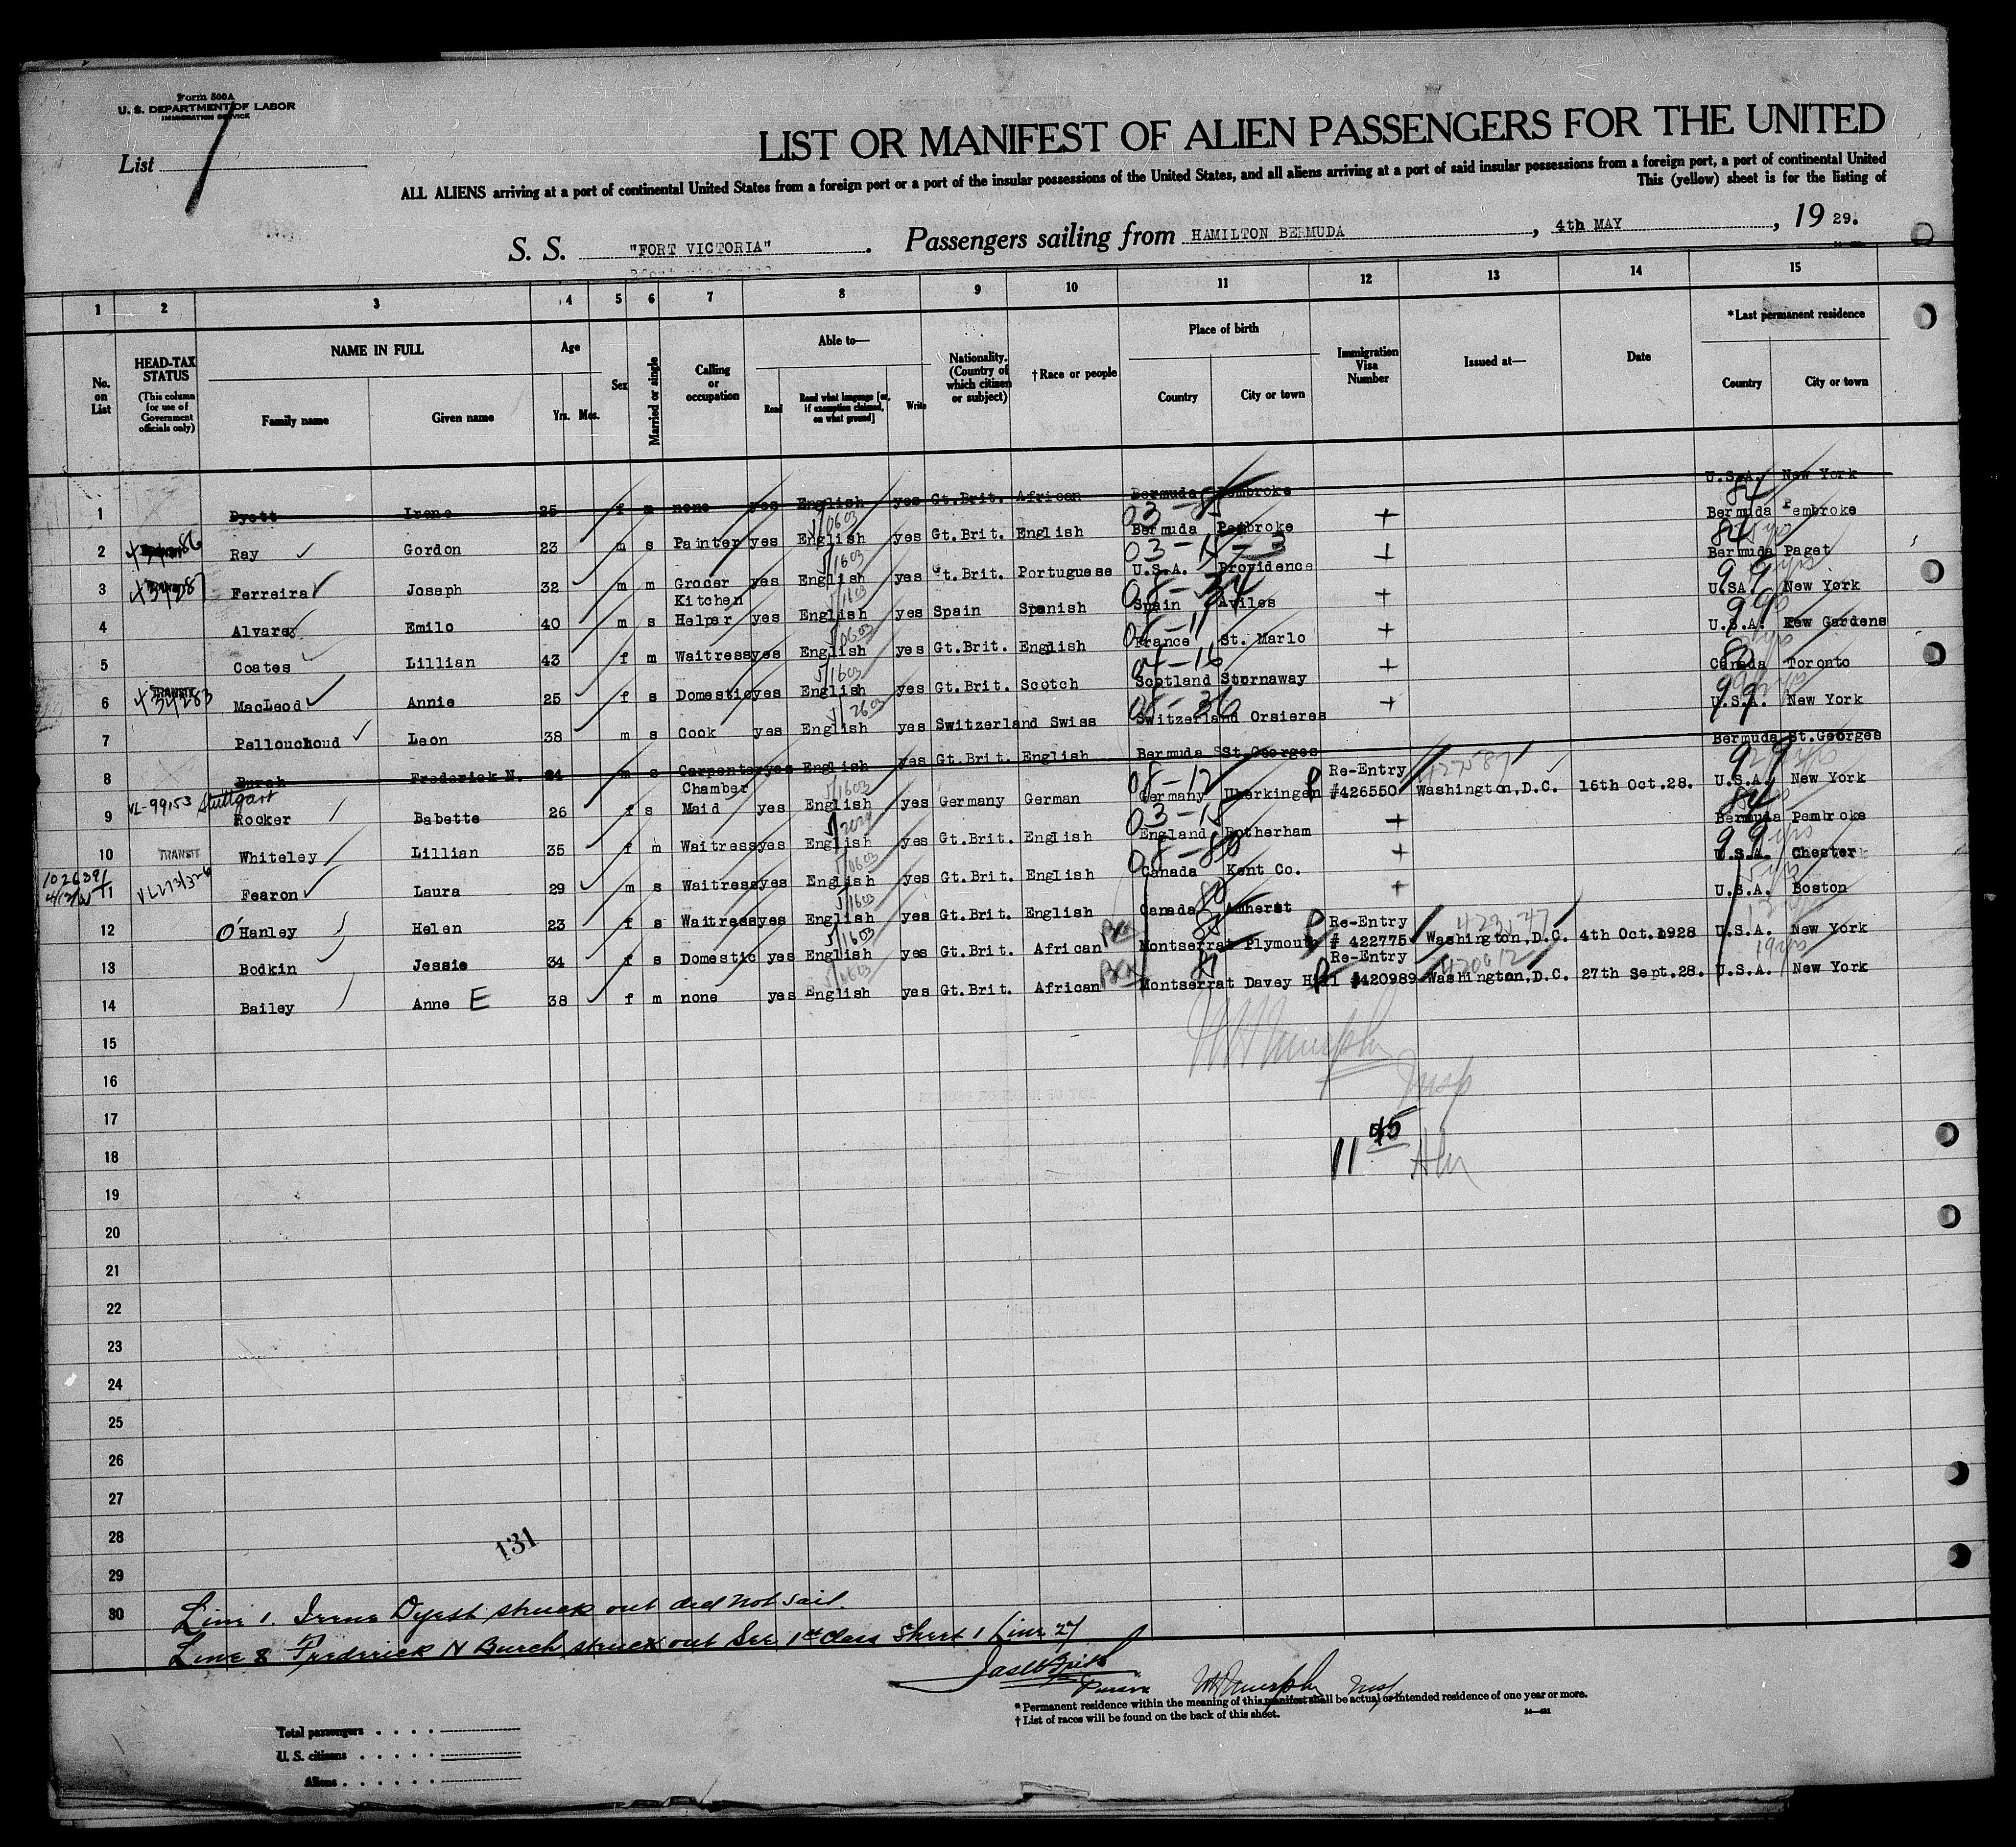 Form 500A
U. S. DEPARTMENT OF LABOR
IMMIGRATION SERVICE
List 1
LIST OR MANIFEST OF ALIEN PASSENGERS FOR THE UNITED
ALL ALIENS arriving at a port of continental United States from a foreign port or a port of the insular possessions of the United States, and all aliens arriving at a port of said insular possessions from a foreign port, a port of continental United
This (yellow) sheet is for the listing of
S. S. "FORT VICTORIA" . Passengers sailing from HAMILTON BERMUDA , 4th MAY , 19 29.
1 2 3 4 5 6 7 8 9 10 11 12 13 14 15
No. on List
HEAD-TAX STATUS (This column for use of Government officials only)
NAME IN FULL
Family name Given name
Age
Yrs. Mos.
Sex
Married or single
Calling or occupation
Able to—
Read Read what language [or, if exemption claimed, on what ground] Write
Nationality. (Country of which citizen or subject)
†Race or people
Place of birth
Country City or town
Immigration Visa Number
Issued at—
Date
*Last permanent residence
Country City or town
1 Dyett Irene 25 f m none yes English yes Gt.Brit. African Bermuda Pembroke U.S.A. New York
2 Ray Gordon 23 m s Painter yes English yes Gt.Brit. English Bermuda Pembroke Bermuda Pembroke
3 Ferreira Joseph 32 m m Grocer yes English yes Gt.Brit. Portuguese U.S.A. Providence Bermuda Paget
4 Alvarez Emilo 40 m s Kitchen Helper yes English yes Spain Spanish Spain Aviles U.SA. New York
5 Coates Lillian 43 f m Waitress yes English yes Gt.Brit. English France St. Marlo U.S.A. Kew Gardens
6 TRANSIT MacLeod Annie 25 f s Domestic yes English yes Gt.Brit. Scotch Scotland Stornaway Canada Toronto
7 Pellouchoud Leon 38 m s Cook yes English yes Switzerland Swiss Switzerland Orsieres U.S.A. New York
8 Burch Frederick N. 24 m s Carpenter yes English yes Gt.Brit. English Bermuda St.Georges Bermuda St.Georges
9 VL-99153 Stuttgart Rocker Babette 26 f s Chamber Maid yes English yes Germany German Germany Uberkingen Re-Entry #426550 Washington,D.C. 16th Oct.28. U.S.A. New York
10 TRANSIT Whiteley Lillian 35 f m Waitress yes English yes Gt.Brit. English England Rotherham Bermuda Pembroke
11 Fearon Laura 29 m s Waitress yes English yes Gt.Brit. English Canada Kent Co. U.S.A. Chester
12 O'Hanley Helen 23 f s Waitress yes English yes Gt.Brit. English Canada Amherst U.S.A. Boston
13 Bodkin Jessie 34 f s Domestic yes English yes Gt.Brit. African Montserrat Plymouth Re-Entry # 422775 Washington,D.C. 4th Oct.1928 U.S.A. New York
14 Bailey Anne E 38 f m none yes English yes Gt.Brit. African Montserrat Davey Hill Re-Entry #420989 Washington,D.C. 27th Sept.28. U.S.A. New York
15
16
17
18
19
20
21
22
23
24
25
26
27
28
29
30
11 45
131
Line 1. Irene Dyett struck out did not sail.
Line 8 Frederick N Burch struck out See 1st Class Sheet 1 Line 27
Purser
W H Murphy Insp
* Permanent residence within the meaning of this manifest shall be actual or intended residence of one year or more.
† List of races will be found on the back of this sheet.
Total passengers . . . .
U. S. citizens . . . . .
Aliens . . . . . .